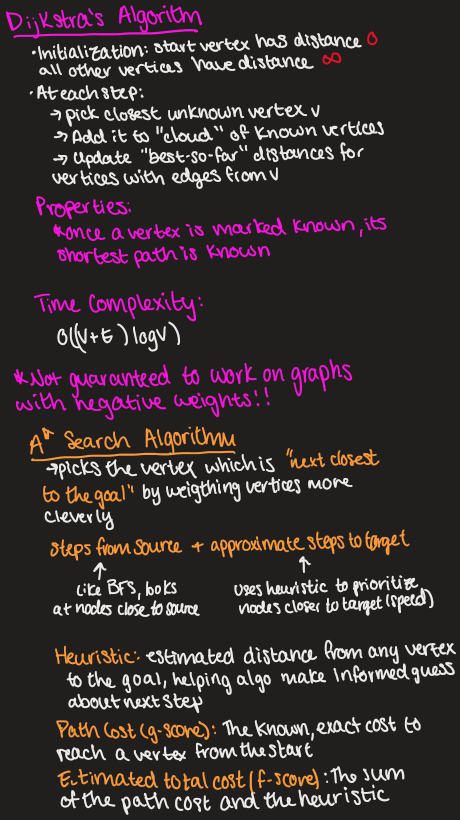 Dijkstra's Algorithm
• Initialization: start vertex has distance 0
all other vertices have distance ∞
• At each step:
→ pick closest unknown vertex v
→ Add it to "cloud" of known vertices
→ Update "best-so-far" distances for
vertices with edges from v
Properties:
*once a vertex is marked known, its
shortest path is known
Time Complexity:
O((V+E) logV)
*Not guaranteed to work on graphs
with negative weights!!
A* Search Algorithm
→picks the vertex which is "next closest
to the goal" by weigthing vertices more
cleverly
steps from source + approximate steps to target
↑ ↑
Like BFS, looks uses heuristic to prioritize
at nodes close to source nodes closer to target (speed)
Heuristic: estimated distance from any vertex
to the goal, helping algo make informed guess
about next step
Path Cost (g-score): The known, exact cost to
reach a vertex from the start
Estimated total cost (f-score): The sum
of the path cost and the heuristic